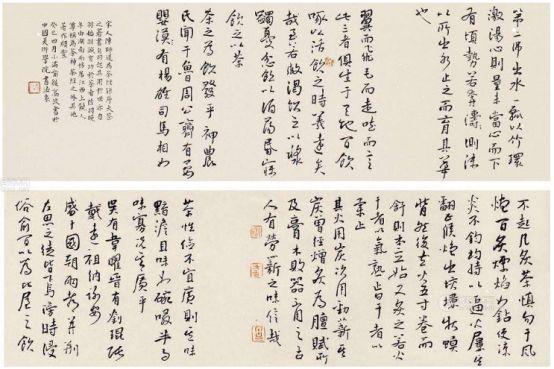 第二沸出水一瓢以竹環
激湯心則量末當心而下
有頃勢若奔濤濺沫
以所出水止之而育其華
也
翼而飛毛而走呿而言
此三者俱生于天地間飲
啄以活飲之時義遠矣
哉至若救渴飲之以漿
蠲憂忿飲以酒蕩昏寐
飲之以茶
茶之為飲發乎神農
氏聞于魯周公齊有晏
嬰漢有楊雄司馬相如
宋人陳師道為茶經作序夫茶
之著書自羽始其用於世亦自
羽始羽誠有功於茶者陸羽晚
年由湖南移居江西上饒人
尊稱為茶神除茶經之外其他
著作頗豐
癸巳四月小滿前
中國美術學院書法系
不起凡炙茶慎勿于風
燼間炙熛焰如鑽使涼
炎不均持以逼火屢其
翻正候炮出培塿狀蟆
背然後去火五寸卷而
舒則本其始又炙之若火
干者以氣熟止日干者以
柔止
其火用炭次用勁薪其
炭曾經燔炙為膻膩所
及膏木敗器不用之古
人有勞薪之味信哉
茶性儉不宜廣則其味
黯澹且味如一碗啜半而
味寡況其廣乎
吳有韋曜晉有劉琨張
載遠祖納謝安
盛于國朝兩都并荊
左思之徒皆飲焉滂時浸
俗俞間以為比屋之飲